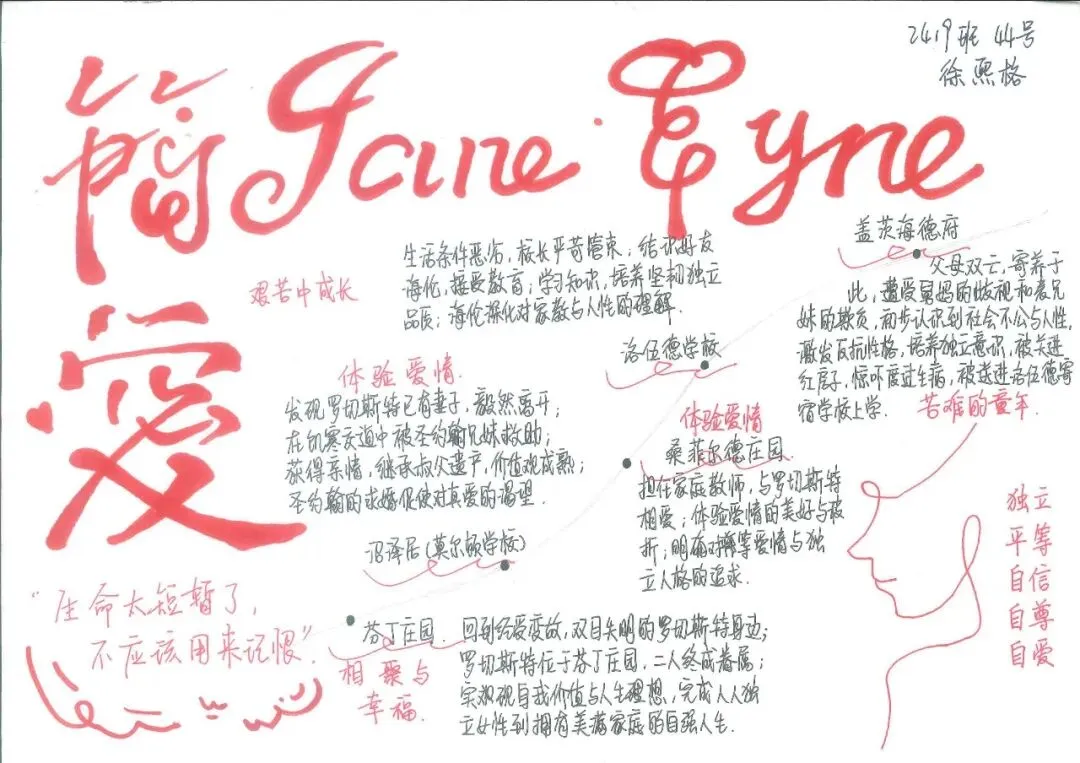 2419班 44号
徐熙格
简爱
Jane Eyre
盖茨海德府
父母双亡，寄养于
此，遭受舅妈的歧视和表兄
妹的欺负，初步认识到社会不公与人性，
激发反抗性格，培养独立意识，被关进
红房子，惊吓度过生病，被送进洛伍德寄
宿学校上学．
苦难的童年．
艰苦中成长
生活条件恶劣，校长严苛管束；结识好友
海伦，接受教育；学习知识，培养坚韧独立
品质；海伦深化对家教与人性的理解．
洛伍德学校
体验爱情
桑菲尔德庄园．
担任家庭教师，与罗切斯特
相爱；体验爱情的美好与被
折；明确对平等爱情与独
立人格的追求．
体验爱情．
发现罗切斯特已有妻子，毅然离开；
在饥寒交迫中被圣约翰兄妹救助；
获得亲情，继承叔父遗产，价值观成熟；
圣约翰的求婚促使对真爱的渴望．
沼泽居(莫尔顿学校)
芬丁庄园．
回到经受变故，双目失明的罗切斯特身边；
罗切斯特位于芬丁庄园，二人终成眷属；
实现自我价值与人生理想，完成人人独
立女性到拥有美满家庭的自强人生．
相聚与
幸福．
“生命太短暂了，
不应该用来记恨”．
独立
平等
自信
自尊
自爱